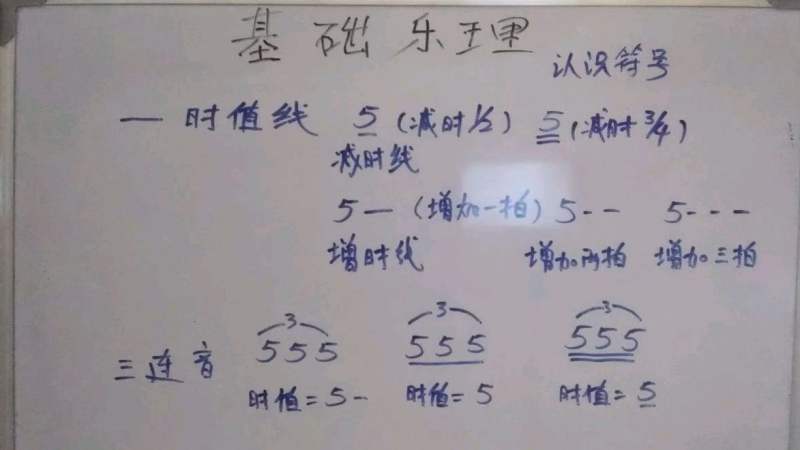 基础乐理
认识符号
一 时值线 5 (减时1/2) 5 (减时3/4)
减时线
5 — (增加一拍) 5 - - 5 - - -
增时线 增加两拍 增加三拍
3 3 3
三连音 555 555 555
时值 = 5 - 时值 = 5 时值 = 5